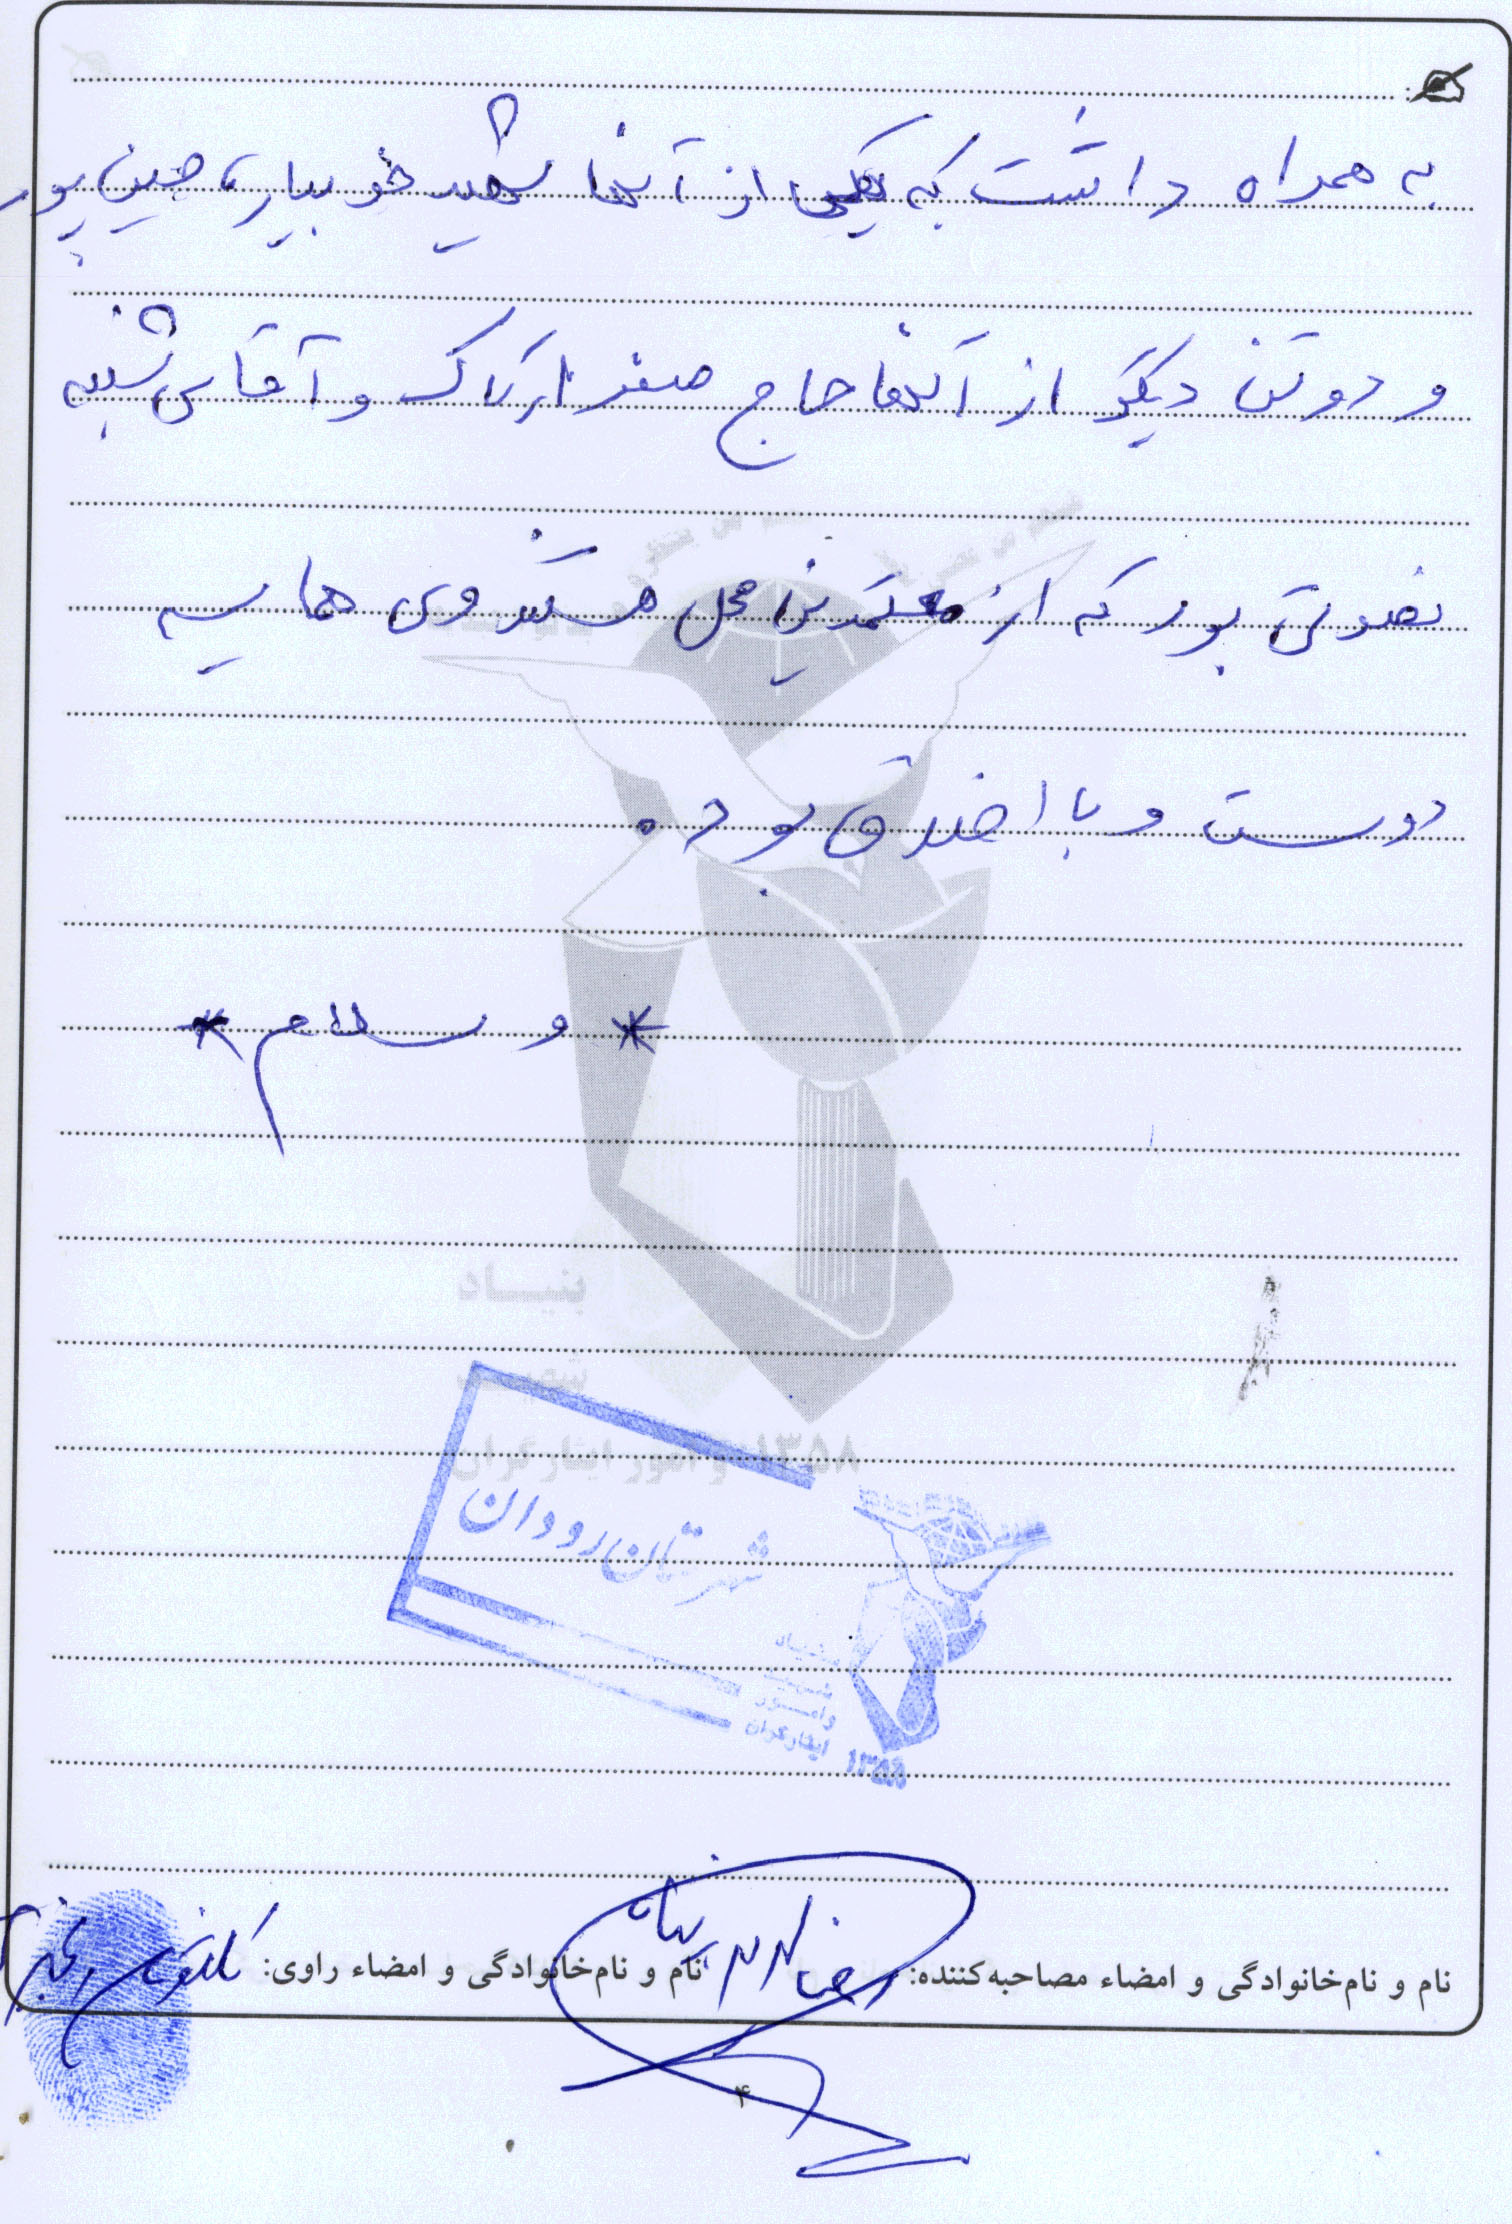 به همراه داشت که یکی از آنها شهید خوبیار حسین پور
و دو تن دیگر از آنها حاج صفر اتراک و آقای شنبه
نصرتی بود که از معتمدین محل هستند وی همسایه
دوست و با اخلاق بود.
* وسلام *
بنیاد
شهید
و امور ایثارگران ۱۳۵۸
شهرستان رودان
بنیاد
شهید
و امور
ایثارگران ۱۳۵۸
نام و نام‌خانوادگی و امضاء مصاحبه‌کننده: نام و نام‌خانوادگی و امضاء راوی: کلثوم
۴